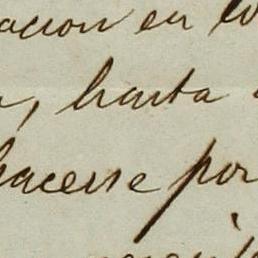 acion en
, hasta
hacerse por